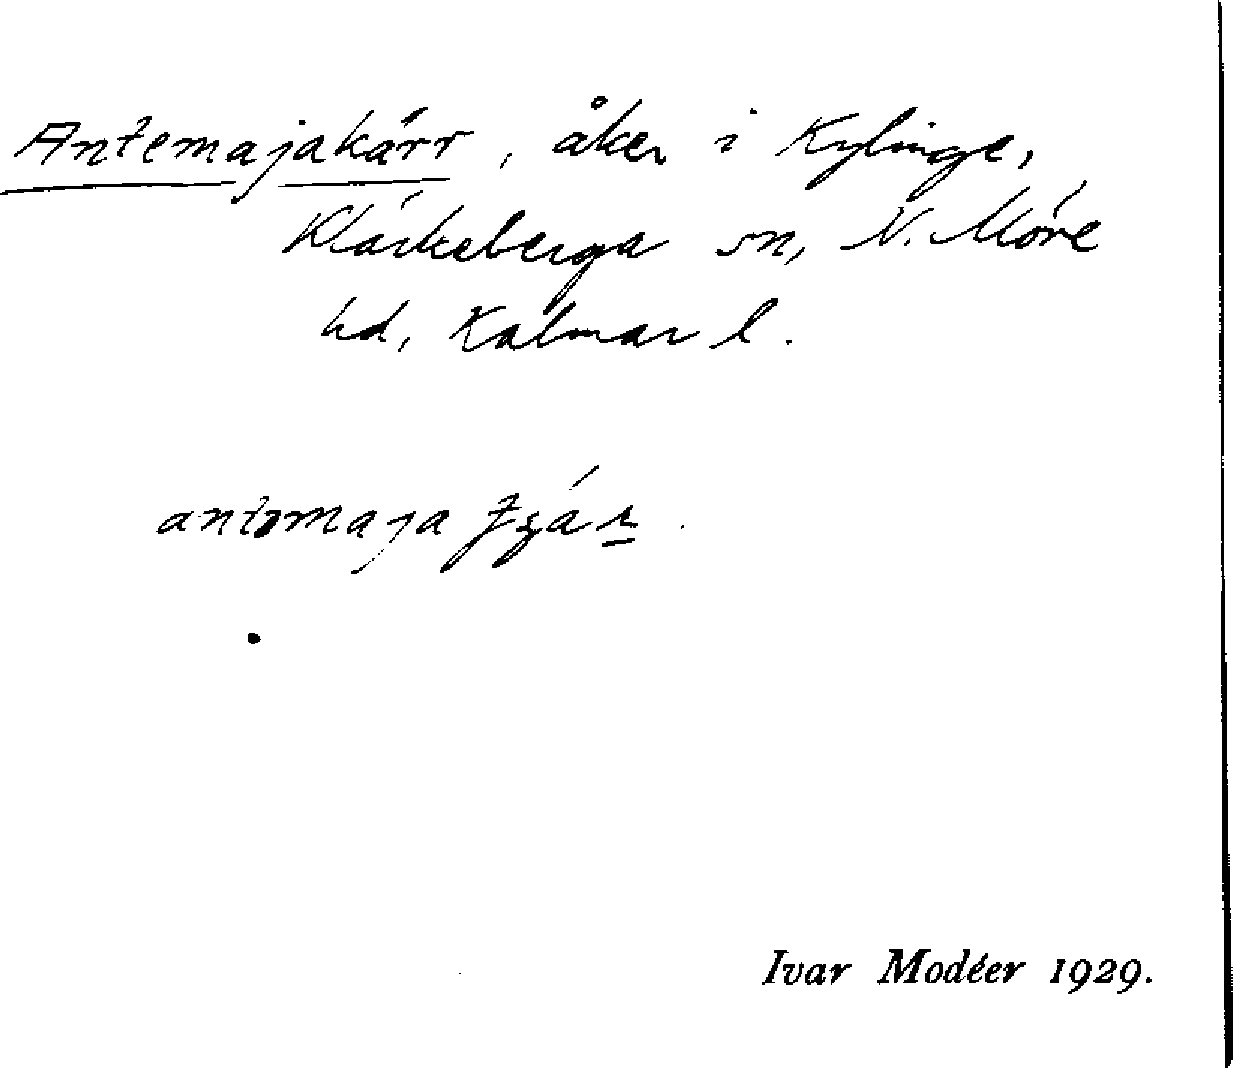 Antemajakärr, åker i Kylinge,
Kläckeberga sn, N. Möre
hd, Kalmar l.
antəmaja
Ivar Modéer 1929.